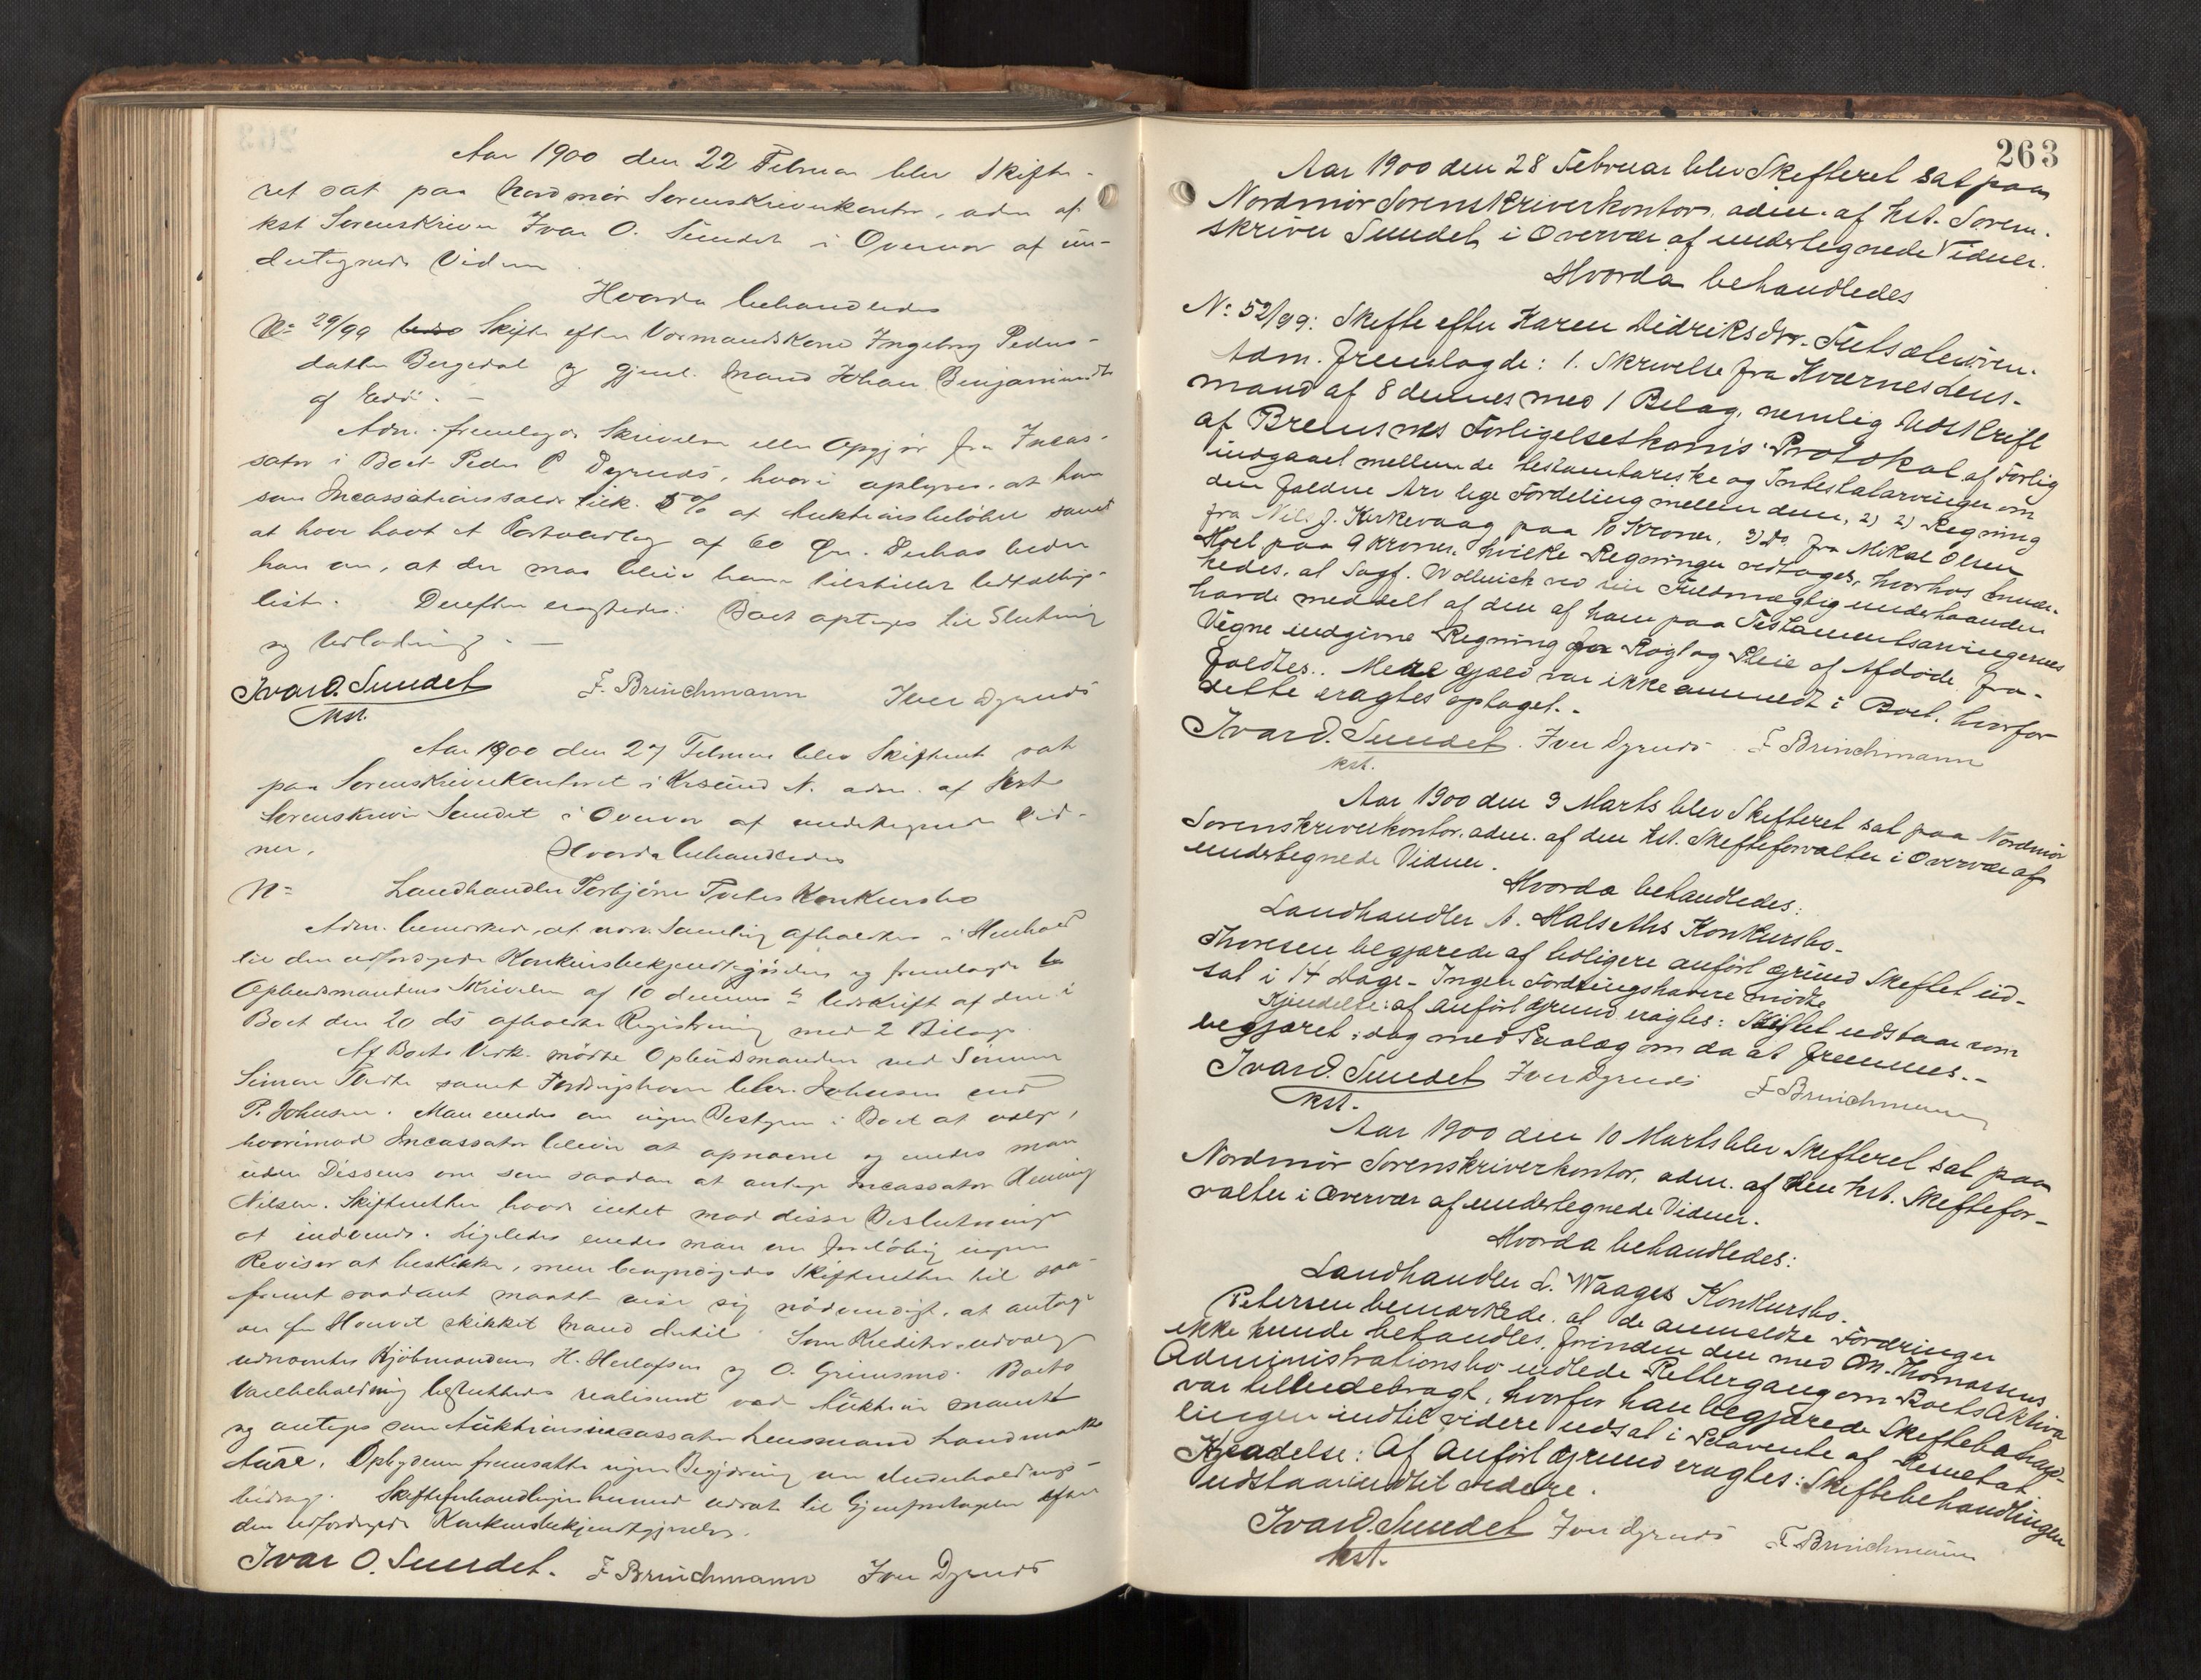 Aar 1900 den 22 Februar blev Skifte-
ret sat paa Nordmør Sorenskriverkontor, adm af
kst Sorenskriver Ivar O. Sundet i Overvær af un-
dertegnede Vidner
Hvorda behandledes
No 29/99 Skifte efter Vormandskone Ingeborg Peders-
datter Bergedal og gjenl. Mand Johan Benjaminsen
af Edø. -
Adm. fremlagde Skrivelse eller Opgjør fra Incas-
sator i Boet Peder P Dyrnes, hvori oplyses, at han
som Incassationssalær tilk. 5% af Auktionsbeløbet samt
at have havt et Portoudlæg af 60 Øre. Derhos beder
han om, at der maa blive ham tilstillet
liste. Derefter eragtedes: Boet optages til Slutning
og Udlodning. -
Ivar O. Sundet F. Brinchmann Iver Dyrnes
kst.
Aar 1900 den 27 Februar blev Skifteret sat
paa Sorenskriverkontoret i Krsund N. adm. af kst
Sorenskriver Sundet i Overvær af undertegnede Vid-
ner.
Hvorda behandledes
No Landhandler Torbjørn Konkursbo
Adm. bemærked, at nærv. Samling afholdtes i Henhold
til den udfærdigede Konkursbekjendtgjørelse og fremlagde
Opbudsmandens Skrivelse af 10 dennes Udskrift af den i
Boet den 20 ds afholdte Registrering med 2 Bilage.
Af Boets Vedk. mødte Opbudsmanden ved Sønnen
Simon samt Fordringshaver Johnsen ved
P. Johnsen. Man enedes om ingen Bestyrer i Boet at vælge,
hvorimod Incassator bliver at opnævne og enedes man
uden Dissens om som saadan at antage Incassator Henning
Nilsen. Skifteretten havde intet mod disse Beslutninger
at indvende. Ligeledes enedes man om foreløbig ingen
Revisor at beskikke, men bemyndigedes Skifteretten til saa-
fremt saadant maatte vise sig nødvendigt, at antage
en for Hvervet skikket Mand dertil. Som Kreditorudvalg
udnævntes Kjøbmændene H. Herlofsen og O. Grimsmo. Boets
Varebeholdning besluttedes realiseret ved Auktion snarest
og antoges som Auktionsincassator Lensmand
Aure. Opbyderen fremsatte ingen Begjæring om Underholdnings-
bidrag. Skifteforhandlingen herved udsat til Gjenforetagelse efter
den udfærdigede Konkursbekjendtgjørelse.
Ivar O. Sundet. F Brinchmann Iver Dyrnes
263
Aar 1900 den 28 Februar blev Skifteret sat paa
Nordmør Sorenskriverkontor, adm. af kst. Soren-
skriver Sundet i Overvær af undertegnede Vidner.
Hvorda behandledes
No 52/99: Skifte efter Karen Didriksdtr.
Adm. fremlagde: 1. Skrivelse fra Kvernes Lens-
mand af 8 dennes med 1 Bilag, nemlig Udskrift
af Bremsnes Forligelseskomis. Protokol af Forlig
indgaaet mellem de testamentariske og Intestatarvinger om
den faldne Arv lige Fordeling mellem dem, 2) 2) Regning
fra Nils J. Kirkevaag paa 10 Kroner, 3) Do. fra Mikal Olsen
Hoel paa 9 Kroner, hvilke Regninger vedtages, hvorhos bemær-
kedes, at Sagf. ved sin Fuldmægtig underhaanden
havde meddelt at den af ham paa Testamentsarvingernes
Vegne indgivne Regning for Røgt og Pleie af Afdøde fra-
faldtes.. Mere Gjæld var ikke anmeldt i Boet, hvorfor
dette eragtes optaget. -
Ivar O. Sundet. Iver Dyrnes F Brinchmann
kst.
Aar 1900 den 3 Marts blev Skifteret sat paa Nordmør
Sorenskriverkontor, adm. af den kst. Skifteforvalter i Overvær af
undertegnede Vidner.
Hvorda behandledes:
Landhandler A. Halseths Konkursbo.
Thoresen begjærede af tidligere anført Grund Skiftet ud-
sat i 14 Dage - Ingen Fordringshavere mødte
Kjendelse: af anført Grund eragtes: Skiftet udstaar som
begjæret i dag med Paalæg om da at fremmes. -
Ivar O. Sundet Iver Dyrnes F Brinchmann
kst.
Aar 1900 den 10 Marts blev Skifteret sat paa
Nordmør Sorenskriverkontor, adm. af den kst. Skiftefor-
valter i Overvær af undertegnede Vidner.
Hvorda behandledes:
Landhandler L. Waages Konkursbo.
Petersen bemærkede, at de anmeldte Fordringer
ikke kunde behandles, forinden den med M. Thomassens
Administrationsbo indlede Rettergang om Boets Aktiva
var tilendebragt, hvorfor han begjærede Skiftebehand-
lingen indtil videre udsat i Paavente af Resultat.
Kjendelse: Af anført Grund eragtes: Skiftebehandlingen
udstaar indtil videre.
Ivar O. Sundet Iver Dyrnes F Brinchmann
kst.